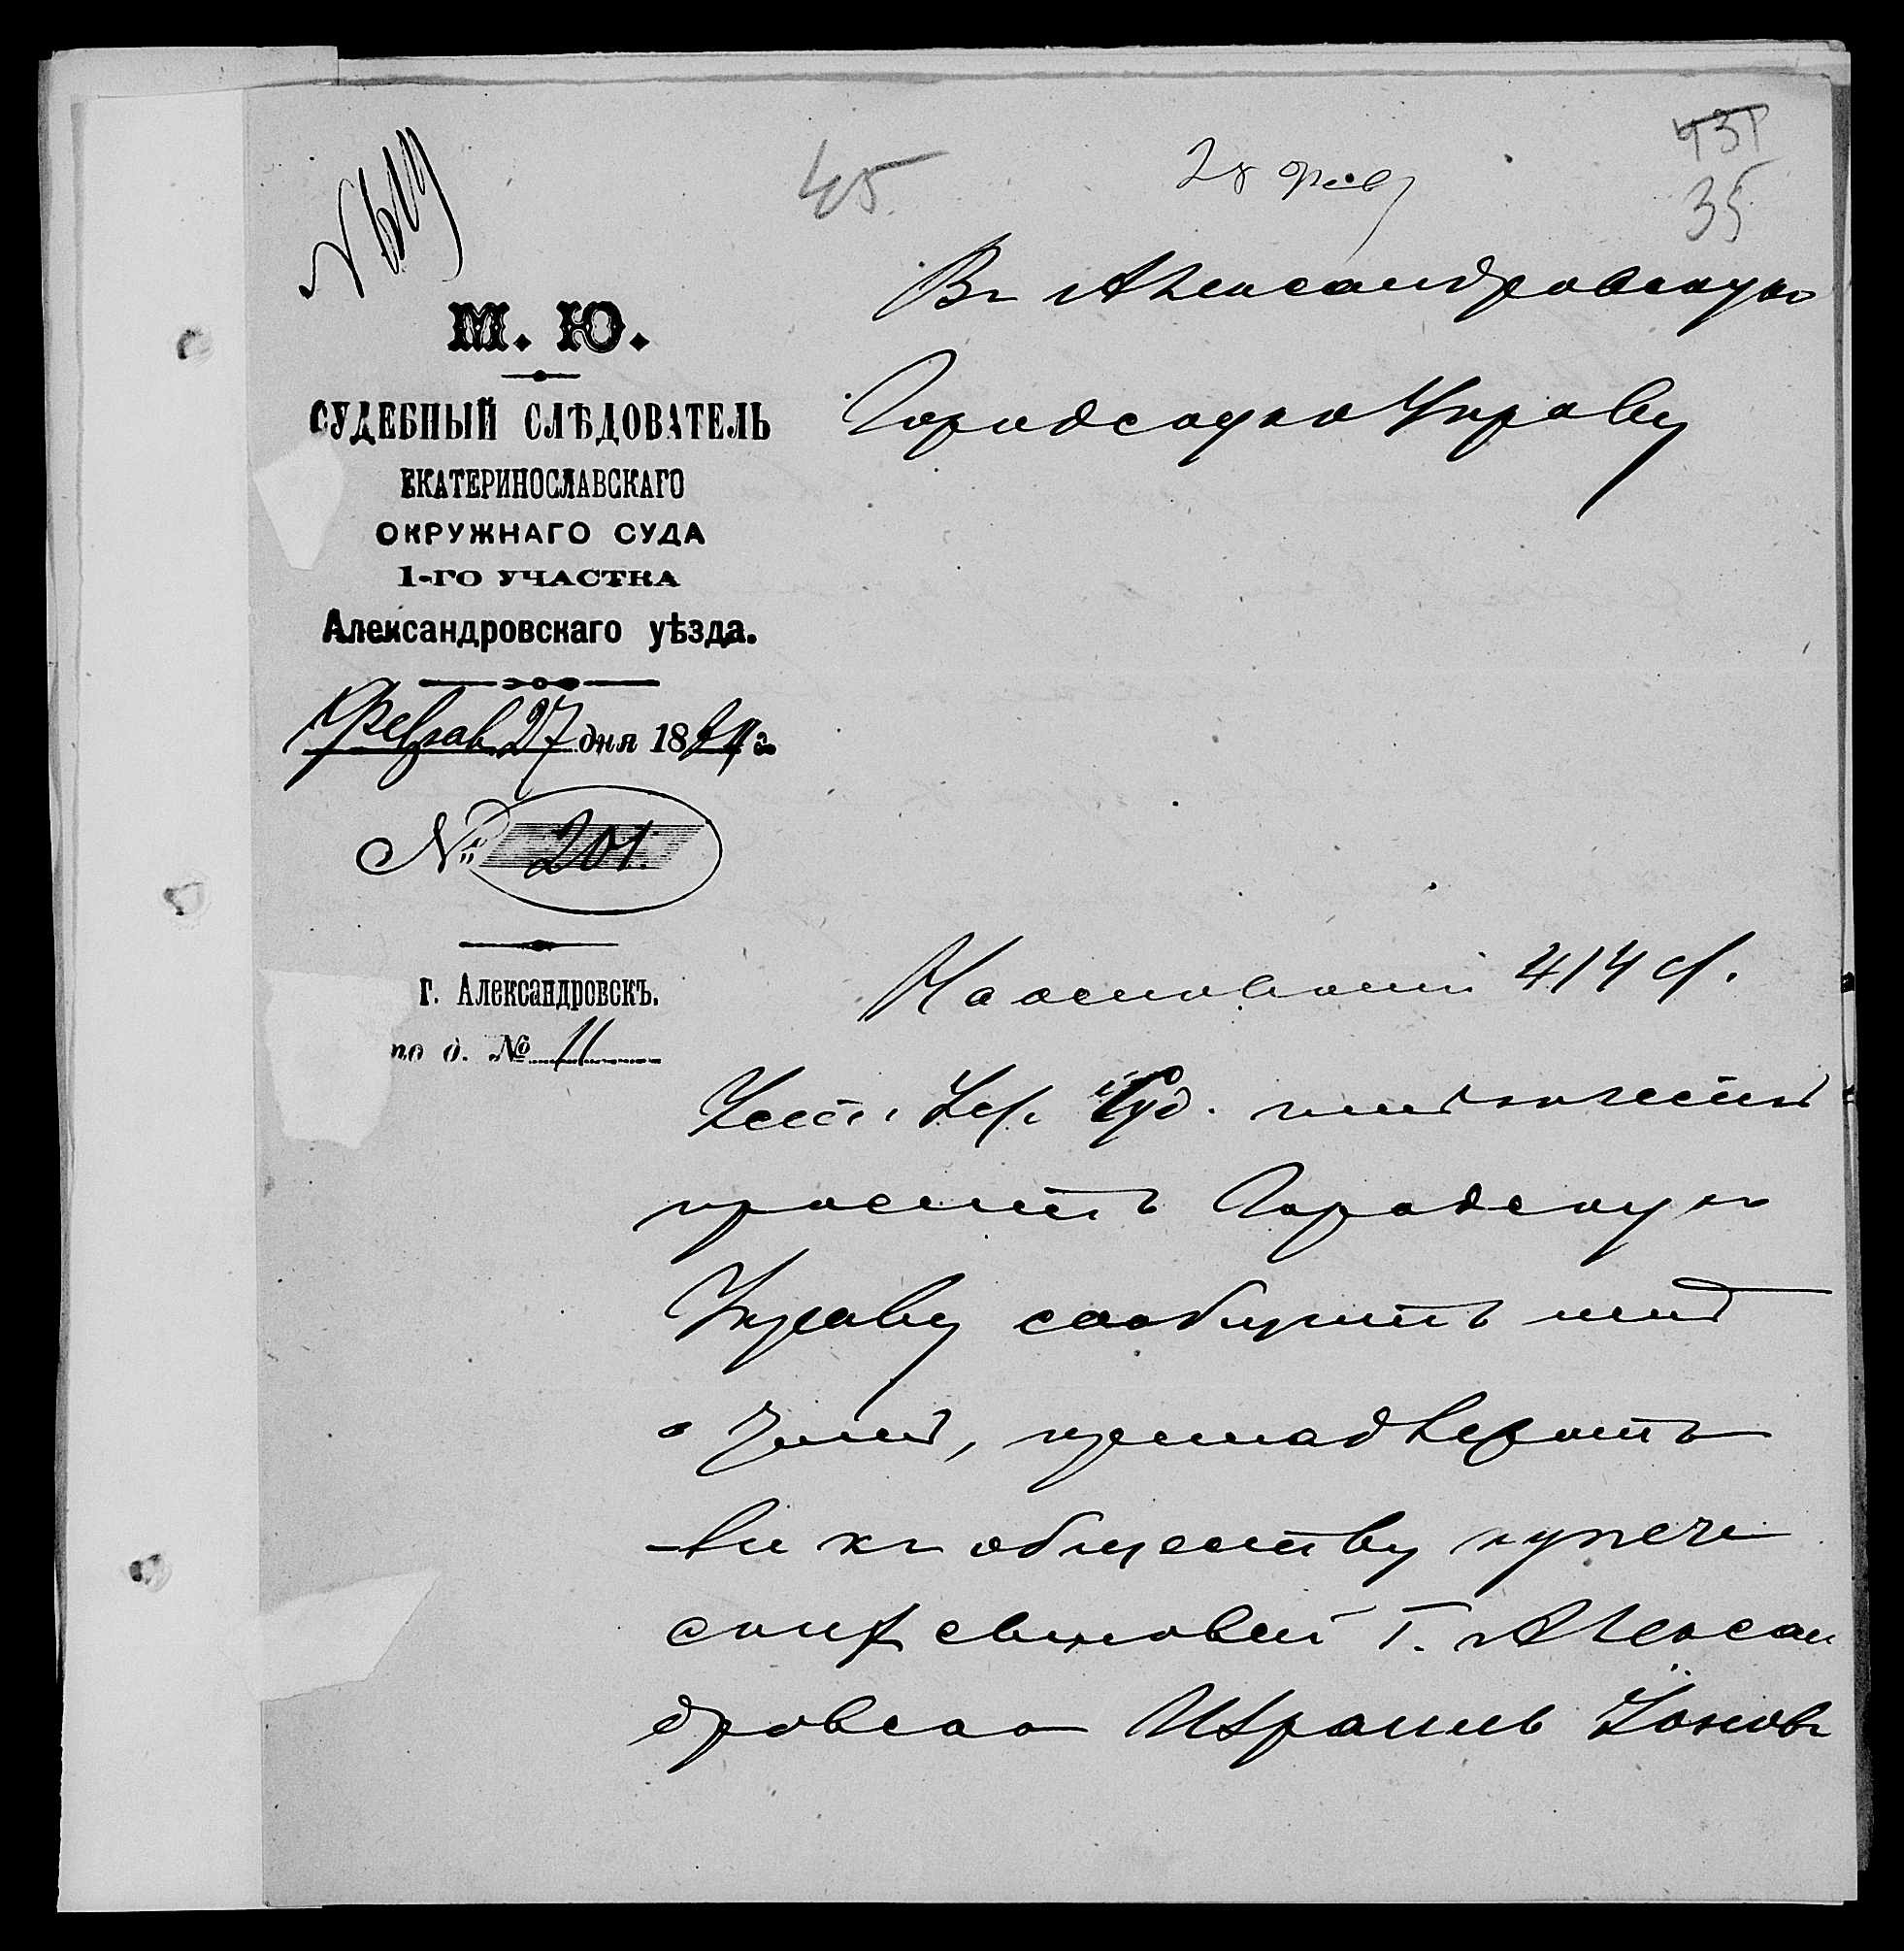 45
28 Фев
431
35
М. Ю.
СУДЕБНЫЙ СЛѢДОВАТЕЛЬ
ЕКАТЕРИНОСЛАВСКАГО
ОКРУЖНАГО СУДА
1-ГО УЧАСТКА
Александровскаго уѣзда.
Феврал 27 дня 188 г.
№ 201.
г. Александровскъ.
по д. № 11
Въ Александровскую
Городскую Управу
На основаніи 414 ст.
Уст. Уг. Суд. имѣю честь
просить Городскую
Управу сообщить мнѣ
о томъ, принадлежатъ
-ли къ обществу купече
скихъ сыновей г. Алексан
дровска Израиль